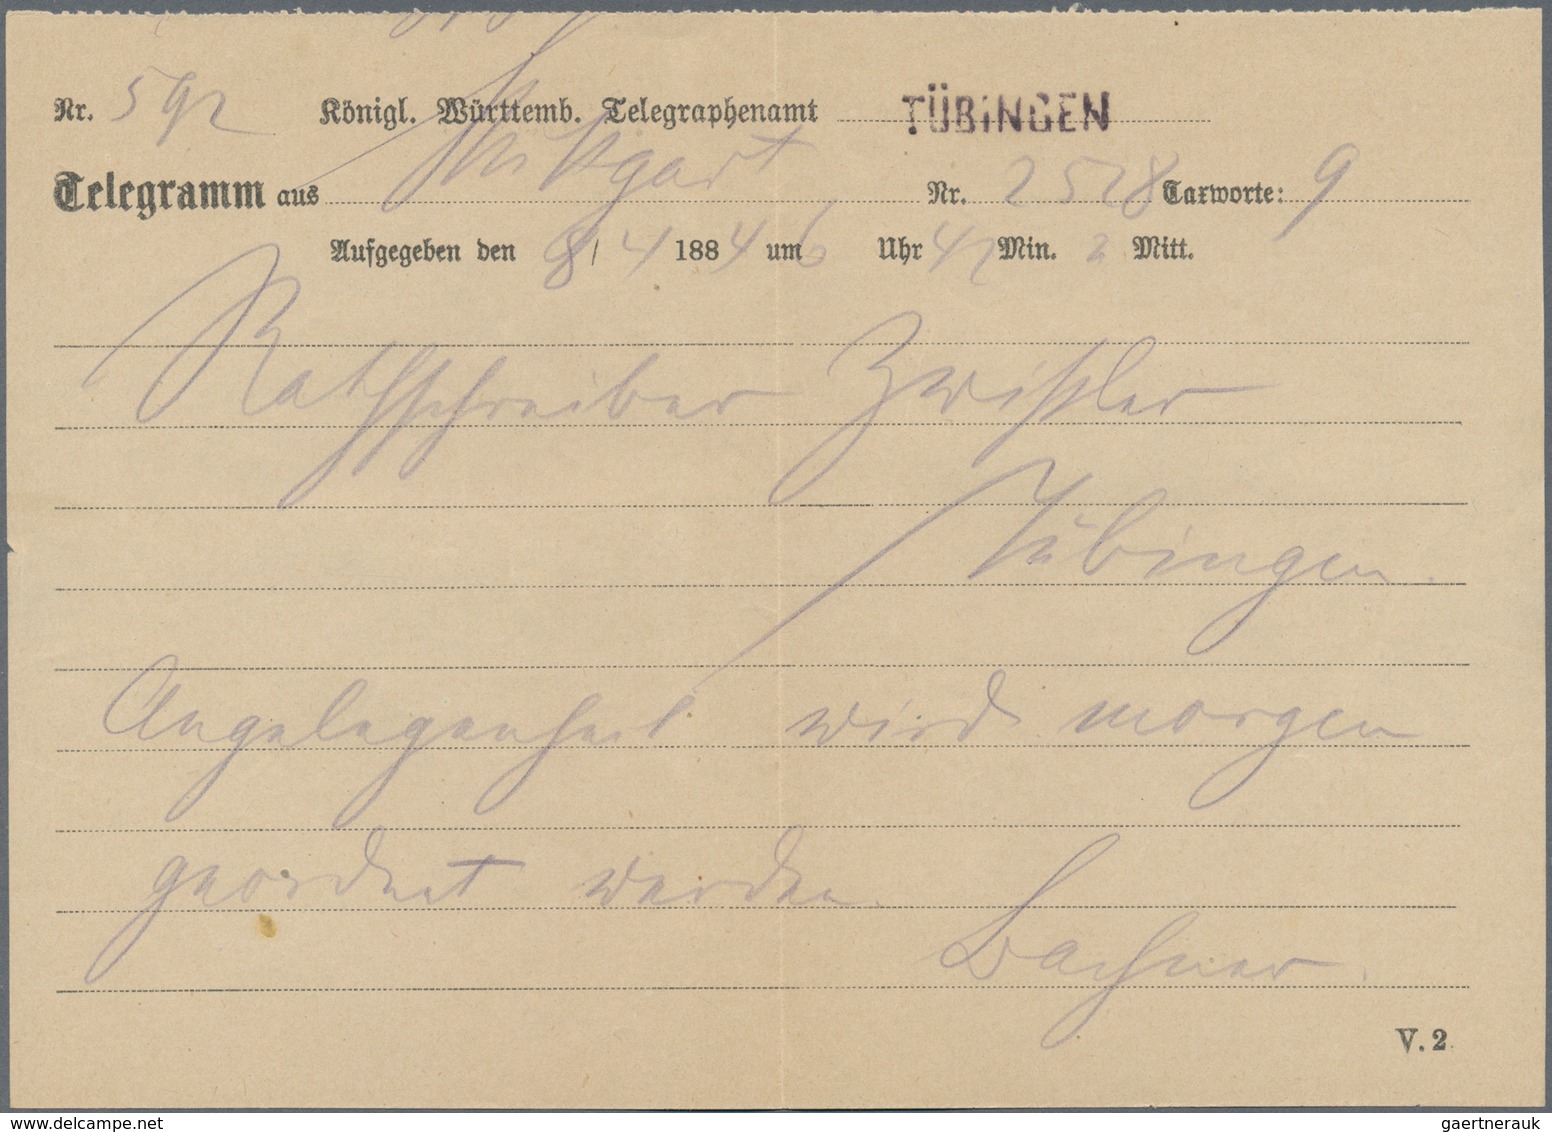 Nr. 592 Königl. Württemb. Telegraphenamt TÜBINGEN
Telegramm aus Stuttgart Nr. 2528 Taxworte: 9
Aufgegeben den 8/4 1884 um 6 Uhr 42 Min. Mitt.
Rathschreiber Zwissler
Tübingen.
Angelegenheit wird morgen
geordnet werden.
Bachner.
V. 2
gaertnerauk @ delcampe.net